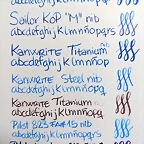 abcdefghijklmnopqrs
Sailor KOP "M" nib
abcdefghij klmnñopqr
Kanwrite Titanium nib
abcdefghij klmnñop
Kanwrite Steel nib
abcdefghijklmnñop
Kanwrite Titanium
abcdefghijklmnñop
Pilot 823 FA #15 nib
abcdefghijklmnñopqrs